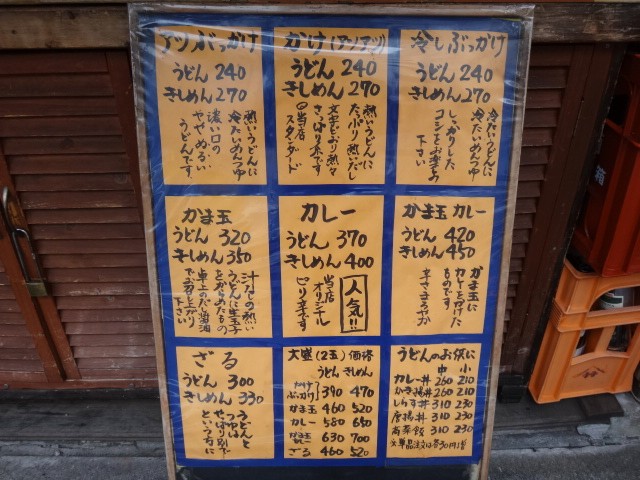 アツぶっかけ
うどん 240
きしめん 270
熱いうどんに
冷たいめんつゆ
濃い口の
ややぬるい
うどんです
かけ(アツアツ)
うどん 240
きしめん 270
熱いうどんに
たっぷり熱いだし
文字どおり熱々
さっぱり系です
当店
スタンダード
冷しぶっかけ
うどん 240
きしめん 270
冷たいうどんに
冷たいめんつゆ
しっかりした
コシをお楽しみ
下さい
かま玉
うどん 320
きしめん 350
汁なしの熱い
うどんに生玉子
をからめたもの
卓上のだし醤油
でお召し上がり
下さい
カレー
うどん 370
きしめん 400
人気!!
当店
オリジナル
ピリ辛です
かま玉 カレー
うどん 420
きしめん 450
かま玉に
カレーをかけた
ものです
辛さまろやか
ざる
うどん 300
きしめん 330
うどんと
つゆは
やっぱり別で
という方に
大盛(2玉)価格
うどん きしめん
かけ
ぶっかけ 390 470
かま玉 460 520
カレー 580 650
かま玉カレー 630 700
ざる 460 520
うどんのお供に
中 小
カレー丼 260 210
かき揚丼 260 210
しらす丼 310 230
唐揚丼 310 230
高菜飯 310 230
単品注文は各30円増